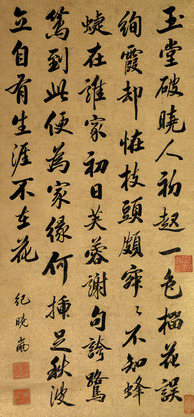 玉堂破曉人初起一色榴花誤
絢霞却怪枝頭頗寂寂不知蜂
蜨在誰家初日芙蓉謝句誇鷺
篤到此便為家緣何插足秋波
立自有生涯不在花
紀曉嵐